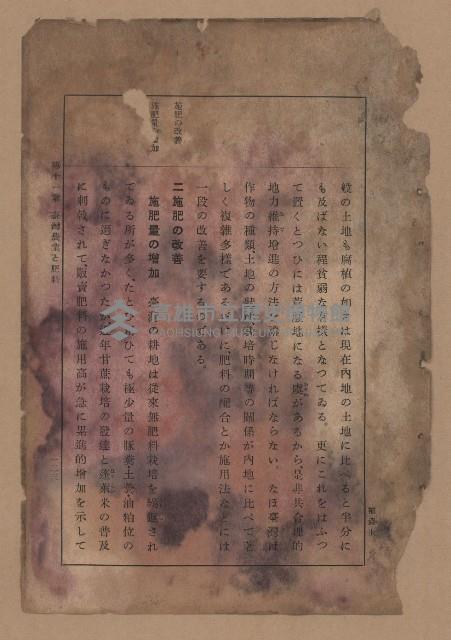 般の土地も腐植の如きは現在内地の土地に比べると半分に
も及ばない程貧弱な有樣となつてゐる。更にこれをはふつ
て置くとつひには荒廢地になる虞があるから、是非共合理的
地力維持增進の方法を講じなければならない。なほ臺灣は
作物の種類、土地の狀態、栽培時期等の關係が內地に比べて著
しく複雜多樣である爲に、肥料の配合とか施用法などには
一段の改善を要するのである。
施肥の改善
二 施肥の改善
施肥量の增加
施肥量の增加 臺灣の耕地は從來無肥料栽培を繰返され
てゐる所が多く、たとひ用ひても極少量の豚糞、土糞、油粕位の
ものに過ぎなかつたが、近年甘蔗栽培の發達と蓬萊米の普及
に刺戟されて、販賣肥料の施用高が急に累進的增加を示して
第十一課 臺灣農業と肥料
高雄市立歷史博物館
KAOHSIUNG MUSEUM OF HISTORY